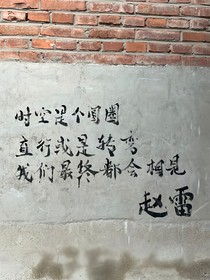 时空是个圆圈
直行或是转弯
我们最终都会相见
赵雷